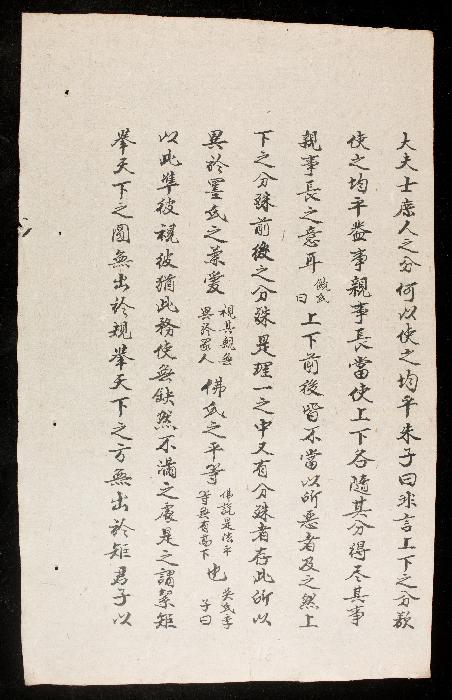 大夫士庶人之分何以使之均平朱子曰非言上下之分欲
使之均平盖事親事長當使上下各隨其分得尽其事
親事長之意耳饒氏曰上下前後皆不當以所惡者及之然上
下之分殊前後之分殊是理一之中又有分殊者存此所以
異於墨氏之蒹愛視其親無異於衆人佛氏之平等佛説是法平等無有高下也吴氏季子曰
以此準彼視彼猶此務使無缺然不滿之處是之謂絜矩
舉天下之圓無出於規舉天下之方無出於矩君子以